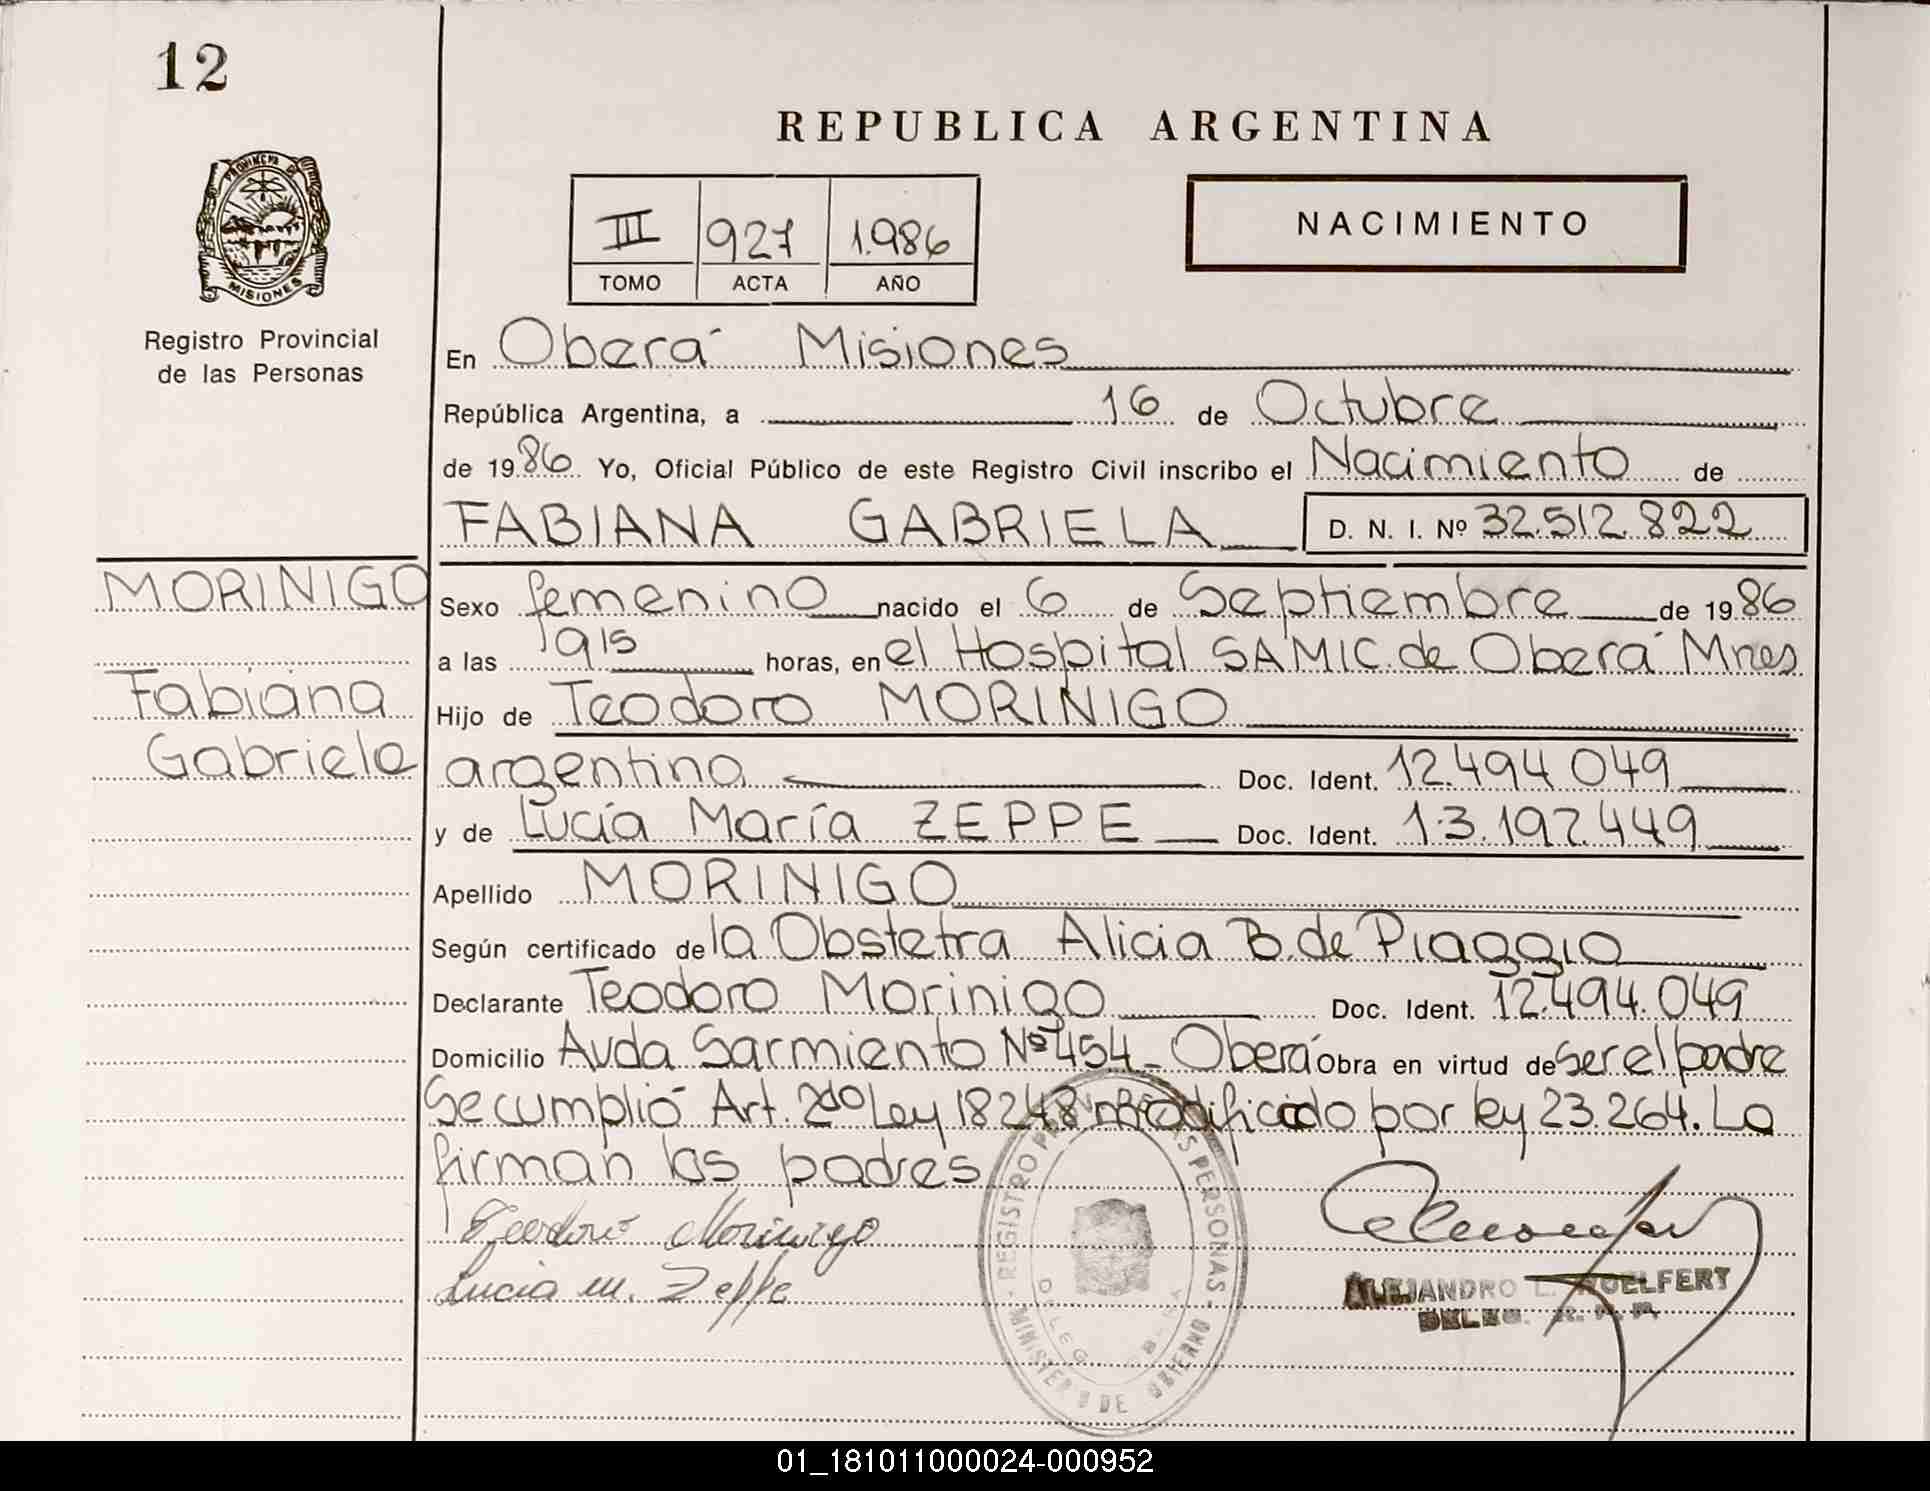 12
PROVINCIA DE
MISIONES
Registro Provincial
de las Personas
REPUBLICA ARGENTINA
III 927 1.986
TOMO ACTA AÑO
NACIMIENTO
En Oberá Misiones
República Argentina, a 16 de Octubre
de 1986 Yo, Oficial Público de este Registro Civil inscribo el Nacimiento de
FABIANA GABRIELA D. N. I. Nº 32.512.822
MORINIGO
Fabiana
Gabriela
Sexo femenino nacido el 6 de Septiembre de 1986
a las 1915 horas, en el Hospital SAMIC. de Oberá Mnes
Hijo de Teodoro MORINIGO
argentina Doc. Ident. 12.494.049
y de Lucía María ZEPPE Doc. Ident. 13.197.449
Apellido MORINIGO
Según certificado de la Obstetra Alicia B. de Piaggio
Declarante Teodoro Morinigo Doc. Ident. 12.494.049
Domicilio Avda Sarmiento Nº 454 - Oberá Obra en virtud de ser el padre
Se cumplió Art. 2do Ley 18248 modificado por ley 23.264. La
firman los padres
Teodoro Morinigo
Lucia M. Zeppe
REGISTRO PROV. DE LAS PERSONAS
MINISTERIO DE GOBIERNO
ALEJANDRO L. WOELFERT
DELEG. R. P. P.
01_181011000024-000952